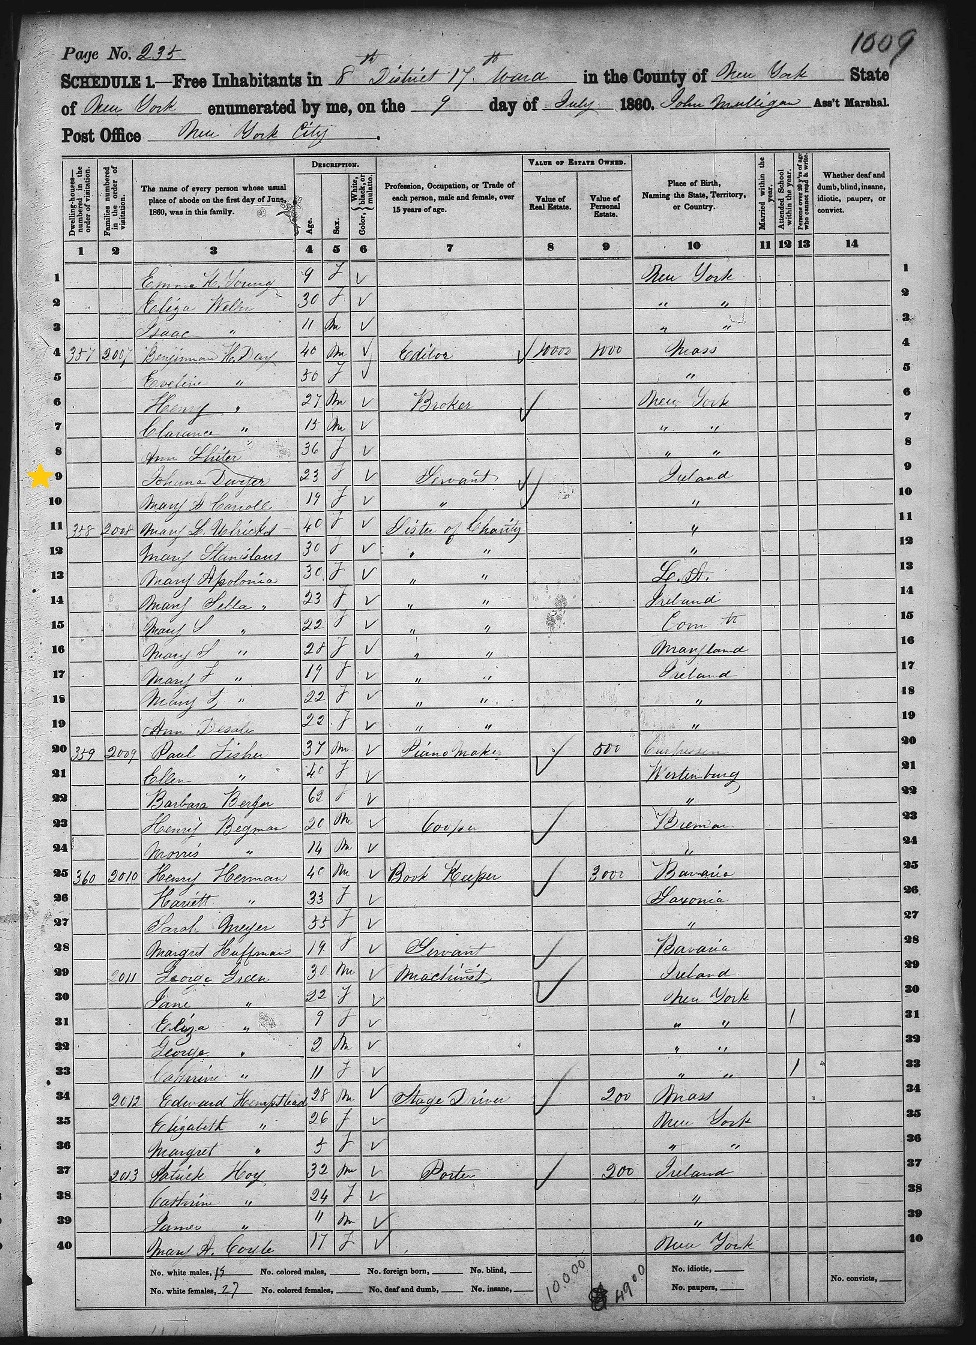 Page No. 235
1009
SCHEDULE 1.—Free Inhabitants in 8th District 17th Ward in the County of New York State
of New York enumerated by me, on the 9 day of July 1860. John Mulligan Ass't Marshal.
Post Office New York City.
Dwelling-houses—numbered in the order of visitation.
Families numbered in the order of visitation.
The name of every person whose usual place of abode on the first day of June, 1860, was in this family.
DESCRIPTION.
Age.
Sex.
Color, White, black, or mulatto.
Profession, Occupation, or Trade of each person, male and female, over 15 years of age.
VALUE OF ESTATE OWNED.
Value of Real Estate.
Value of Personal Estate.
Place of Birth, Naming the State, Territory, or Country.
Married within the year.
Attended School within the year.
Persons over 20 y'rs of age who cannot read & write.
Whether deaf and dumb, blind, insane, idiotic, pauper, or convict.
1 2 3 4 5 6 7 8 9 10 11 12 13 14
1 Emma H. Young 9 f ✓ New York 1
2 Eliza 30 f ✓ " " 2
3 Isaac " 11 m ✓ " " 3
4 357 2007 Benjamin H. Day 40 m ✓ Editor ✓ 10000 1000 Mass 4
5 Eveline " 50 f ✓ " 5
6 Henry " 27 m ✓ Broker ✓ New York 6
7 Clarance " 15 m ✓ " " 7
8 Ann 36 f ✓ " " 8
9 23 f ✓ Servant ✓ Ireland 9
10 Mary A Carroll 19 f ✓ " ✓ " 10
11 358 2008 Mary 40 f ✓ Sister of Charity " 11
12 Mary Stanislaus 30 f ✓ " " " 12
13 Mary Apolonia 30 f ✓ " " 13
14 Mary " 23 f ✓ " " Ireland 14
15 Mary S " 22 f ✓ " " Conn 15
16 Mary " 28 f ✓ " " Maryland 16
17 Mary " 19 f ✓ " " Ireland 17
18 Mary " 22 f ✓ " " " 18
19 Ann 22 f ✓ " " " 19
20 359 2009 Paul Fisher 37 m ✓ Piano maker ✓ 500 20
21 Ellen " 40 f ✓ Wertenburg 21
22 Barbara Berger 62 f ✓ " 22
23 Henry Begman 20 m ✓ Cooper ✓ Bremen 23
24 Morris " 14 m ✓ " 24
25 360 2010 Henry Herman 40 m ✓ Book Keeper ✓ 3000 Bavaria 25
26 Hariett " 33 f ✓ Saxonia 26
27 Sarah Meyer 55 f ✓ " 27
28 Margret Huffman 19 f ✓ Servant ✓ Bavaria 28
29 2011 George Green 30 m ✓ Machinist ✓ Ireland 29
30 Jane " 22 f ✓ New York 30
31 Eliza " 9 f ✓ " " 1 31
32 George " 2 m ✓ " " 32
33 Cathrine " 11 f ✓ " " 1 33
34 2012 Edward Hempstead 28 m ✓ Stage Driver ✓ 200 Mass 34
35 Elizabeth " 26 f ✓ New York 35
36 Margret " 5 f ✓ " " 36
37 2013 Patrick Hoy 32 m ✓ Porter ✓ 200 Ireland 37
38 Cathrine " 24 f ✓ " 38
39 James " 11 m ✓ " 39
40 Mary A. Coyle 17 f ✓ New York 40
No. white males, 15 No. colored males, No. foreign born, No. blind, 10.000 4900 No. idiotic, No. convicts,
No. white females, 27 No. colored females, No. deaf and dumb, No. insane, No. paupers,